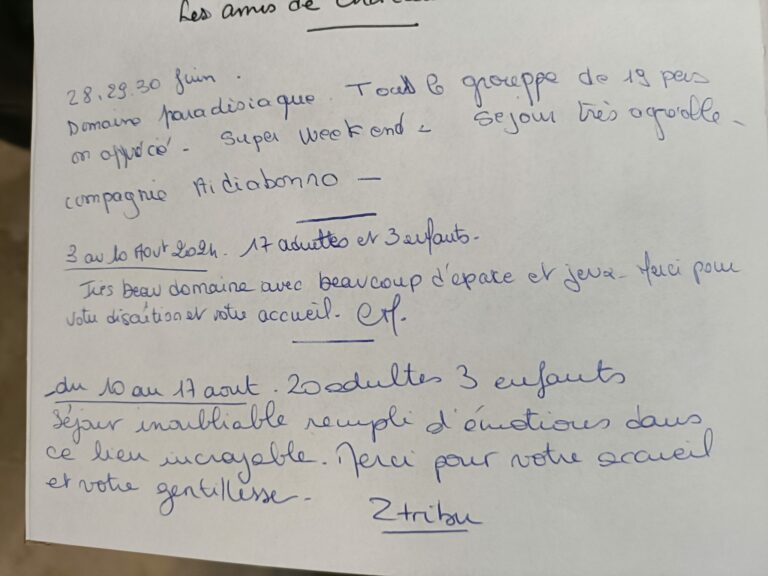 Les amis de
28.29.30 Juin.
Domaine paradisiaque. Tout le grouppe de 19 pers
on apprécié - Super Week end - Sejour très agréable -
compagnie Aidiabonno -
3 au 10 Aout 2024. 17 adultes et 3 enfants -
Très beau domaine avec beaucoup d'espace et jeux - Merci pour
votre discrétion et votre accueil -
du 10 au 17 aout. 20 adultes 3 enfants
Séjour inoubliable rempli d'émotions dans
ce lieu incroyable. Merci pour votre accueil
et votre gentillesse -
Ztribu